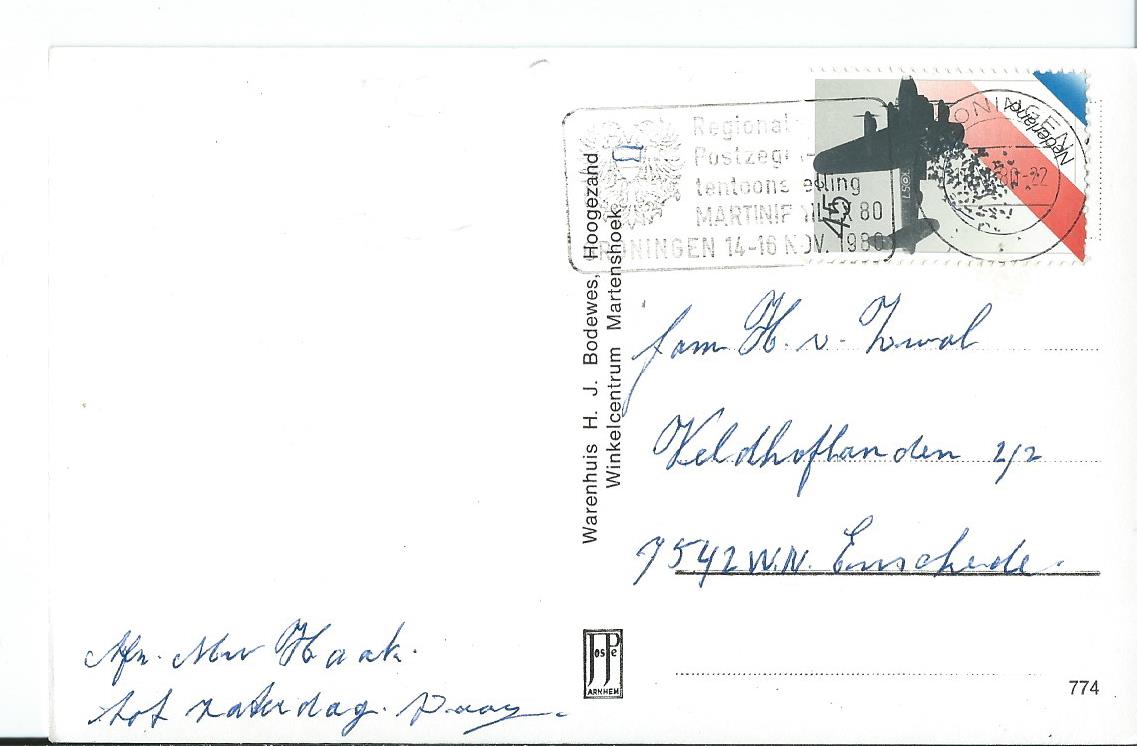 Regional
Postzegel-
tentoonstelling
MARTINIF X 80
GRONINGEN 14-16 NOV. 1980
GRONINGEN
-22
Nederland
45
Warenhuis H. J. Bodewes, Hoogezand
Winkelcentrum Martenshoek
fam H. v. Zwol
Veldhoflanden 2/2
7542 W.N. Enschede.
Afz. Mw Haak.
tot zaterdag.
JosPe
ARNHEM
774